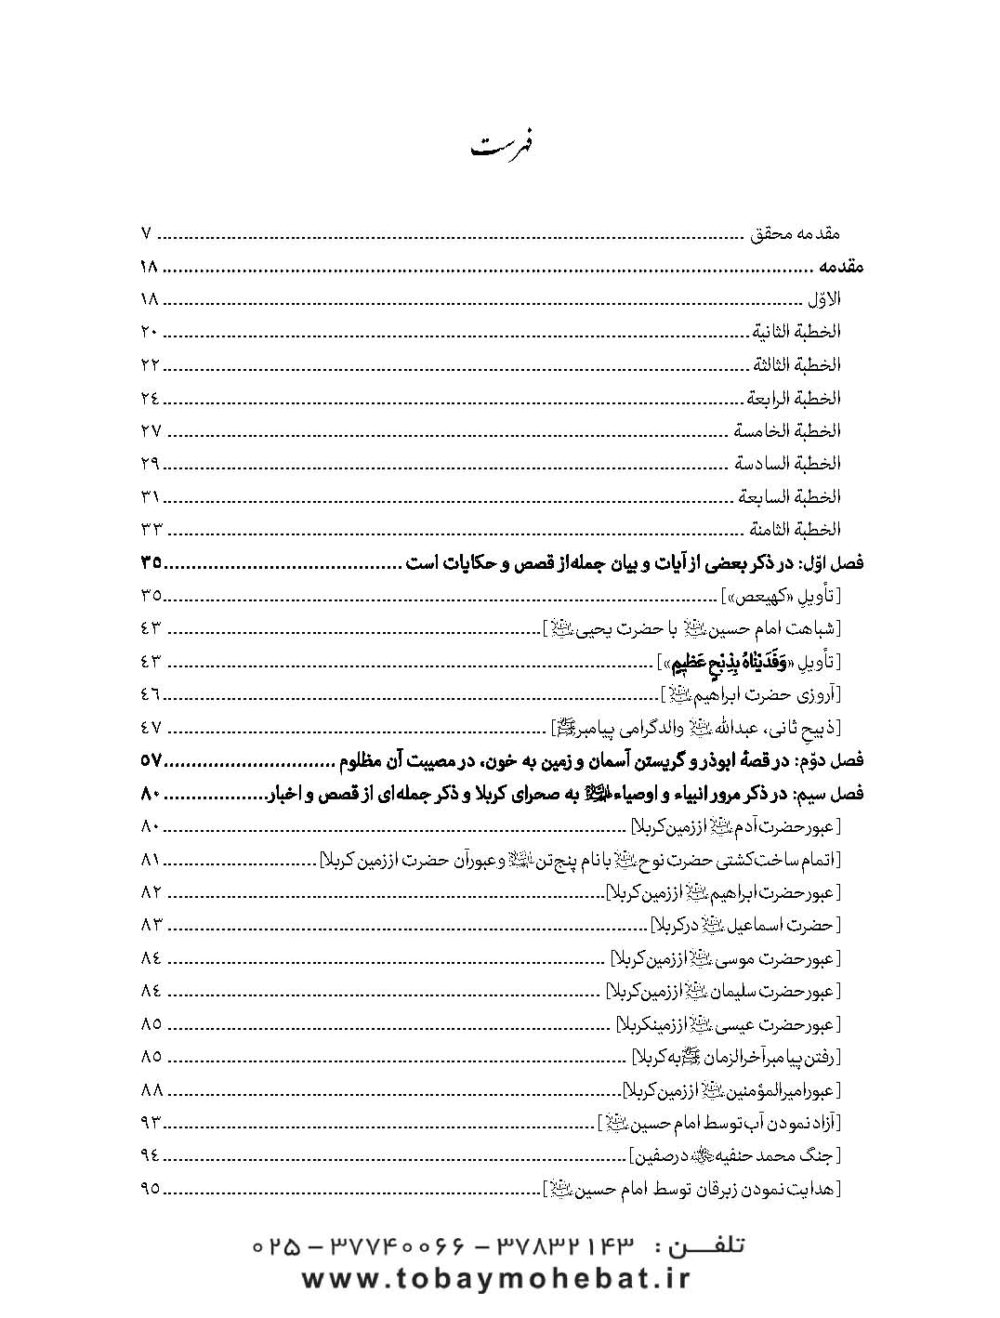 فهرست
مقدمه محقق ........ ۷
مقدمه ........ ۱۸
الاوّل ........ ۱۸
الخطبة الثانية ........ ۲۰
الخطبة الثالثة ........ ۲۲
الخطبة الرابعة ........ ۲٤
الخطبة الخامسة ........ ۲۷
الخطبة السادسة ........ ۲۹
الخطبة السابعة ........ ۳۱
الخطبة الثامنة ........ ۳۳
فصل اوّل: در ذکر بعضی از آیات و بیان جمله‌از قصص و حکایات است ........ ۳٥
[تأویلِ «کهیعص»] ........ ۳٥
[شباهت امام حسین علیه‌السلام با حضرت یحیی علیه‌السلام] ........ ٤۳
[تأویلِ «وَفَدَيْنَاهُ بِذِبْحٍ عَظِيمٍ»] ........ ٤۳
[آروزی حضرت ابراهیم علیه‌السلام] ........ ٤٦
[ذبیحِ ثانی، عبدالله علیه‌السلام والدگرامی پیامبرﷺ] ........ ٤۷
فصل دوّم: در قصهٔ ابوذر و گریستن آسمان و زمین به خون، در مصیبت آن مظلوم ........ ٥۷
فصل سیم: در ذکر مرور انبیاء و اوصیاء علیهم‌السلام به صحرای کربلا و ذکر جمله‌ای از قصص و اخبار ........ ۸۰
[عبور حضرت آدم علیه‌السلام از زمین کربلا] ........ ۸۰
[اتمام ساخت کشتی حضرت نوح علیه‌السلام با نام پنج‌تن علیهم‌السلام و عبور آن حضرت از زمین کربلا] ........ ۸۱
[عبور حضرت ابراهیم علیه‌السلام از زمین کربلا] ........ ۸۲
[حضرت اسماعیل علیه‌السلام در کربلا] ........ ۸۳
[عبور حضرت موسی علیه‌السلام از زمین کربلا] ........ ۸٤
[عبور حضرت سلیمان علیه‌السلام از زمین کربلا] ........ ۸٤
[عبور حضرت عیسی علیه‌السلام از زمینکربلا] ........ ۸٥
[رفتن پیامبر آخرالزمان ﷺ به کربلا] ........ ۸٥
[عبور امیرالمؤمنین علیه‌السلام از زمین کربلا] ........ ۸۸
[آزاد نمودن آب توسط امام حسین علیه‌السلام] ........ ۹۳
[جنگ محمد حنفیه در صفین] ........ ۹٤
[هدایت نمودن زبرقان توسط امام حسین علیه‌السلام] ........ ۹٥
تلفــــن : ۳۷۸۳۲۱۴۳ – ۳۷۷۴۰۰۶۶ – ۰۲۵
www.tobaymohebat.ir